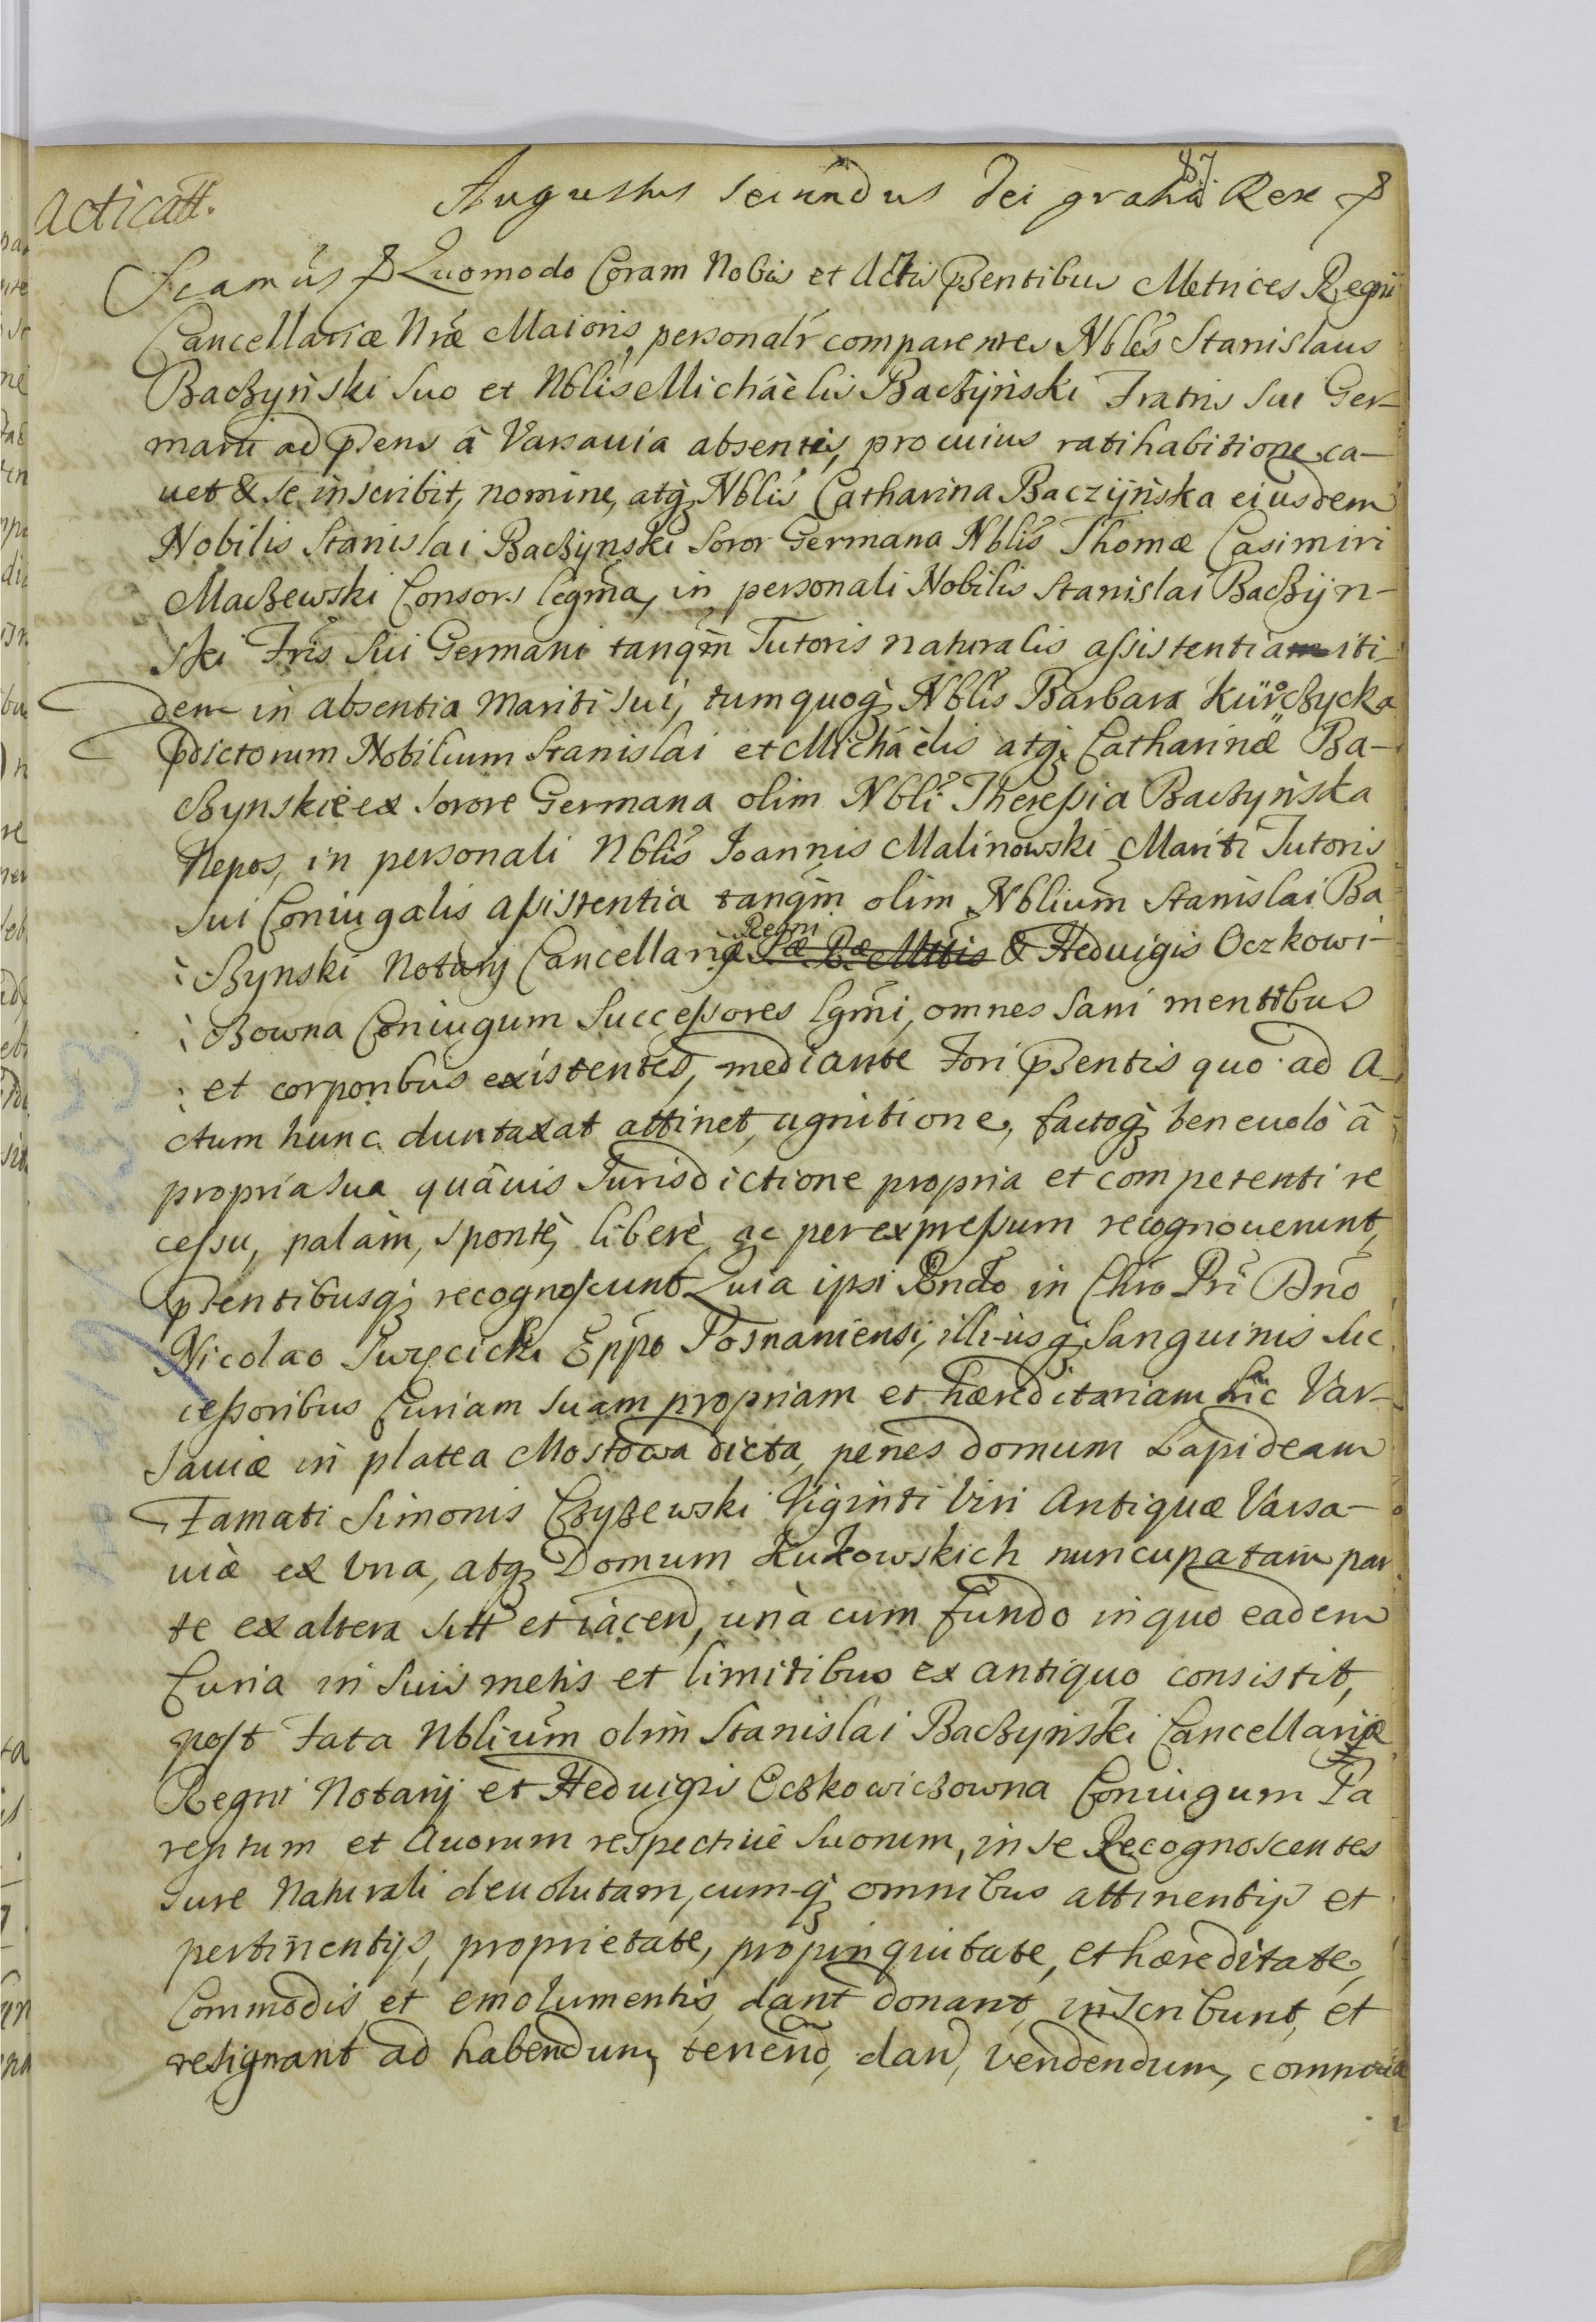 87.
Acticatt. Augustus secundus Dei gratia Rex &
Quomodo Coram Nobis et Actis pñsentibus Metrices Regni
Cancellariæ Nræ Maioris, personalr comparentes Nblis Stanislaus
Baczyński suo et Nblis Michäelis Baczyński Fratris sui Ger-
mani ad pñsens à Varsavia absentis, pro cuius ratihabitione ca-
uet & se inscribit, nomine, atq Nblis Catharina Baczyńska eiusdem
Nobilis Stanislai Baczynski Soror Germana Nblis Thomæ Casimiri
Maczewski Consors legma, in personali Nobilis Stanislai Baczyn-
ski Fris Sui Germani tanqm Tutoris naturalis assistentia iti-
dem in absentia Mariti sui, tum quoq Nblis Barbara Kürczycka
pdictorum Nobilium Stanislai et Michäelis atq Catharinæ Ba-
czynskie ex sorore Germana olim Nbli Theressia Baczyńska
Nepos, in personali Nblis Joannis Malinowski Mariti Tutoris
sui Coniugalis assistentia tanqm olim Nblium Stanislai Ba
czynski Notarij Cancellariæ Regni & Heduigis Oczkowi-
czowna Coniugum Successores lgmi, omnes sani mentibus
et corporibus existentes, mediante Fori pñsentis quo ad A-
ctum hunc duntaxat attinet, agnitione, factoq beneuolo à
propria sua quâuis Jurisdictione propria et competenti re
cessu, palàm, spontè, liberè, ac per expressum recognouerunt,
pñsentibusq recognoscunt Quia ipsi Rndo in Chro Pri Dno
Nicolao Swięcicki Eppo Posnaniensi, illiusq Sanguinis Suc
cessoribus Curiam suam propriam et hæreditariam hic Var-
sauiæ in platea Mostowa dicta, penes domum Lapideam
Famati Simonis Czyzewski Viginti Viri Antiquæ Varsa-
uiæ ex vna, atq Domum Zukowskich nuncupatam par
te ex altera sitt et iacen, unà cum fundo in quo eadem
Curia in suis metis et limitibus ex antiquo consistit,
post Fata Nblium olim Stanislai Baczyński Cancellariæ
Regni Notarij et Heduigis Oczkowiczowna Coniugum Pa
rentum et Auorum respectiuè Suorum, in se Recognoscentes
Jure Naturali deuolutam, cumq omnibus attinentijs et
pertinentijs, proprietate, propinquitate, et hæreditate,
Commodis et emolumentis, dant donant, inscribunt, et
resignant ad habendum, tenend, dan, vendendum,